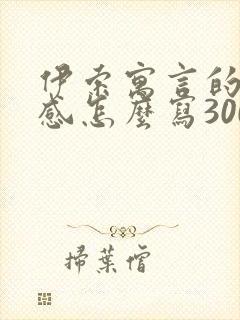 伊索寓言的
感怎麼寫300
掃葉僧